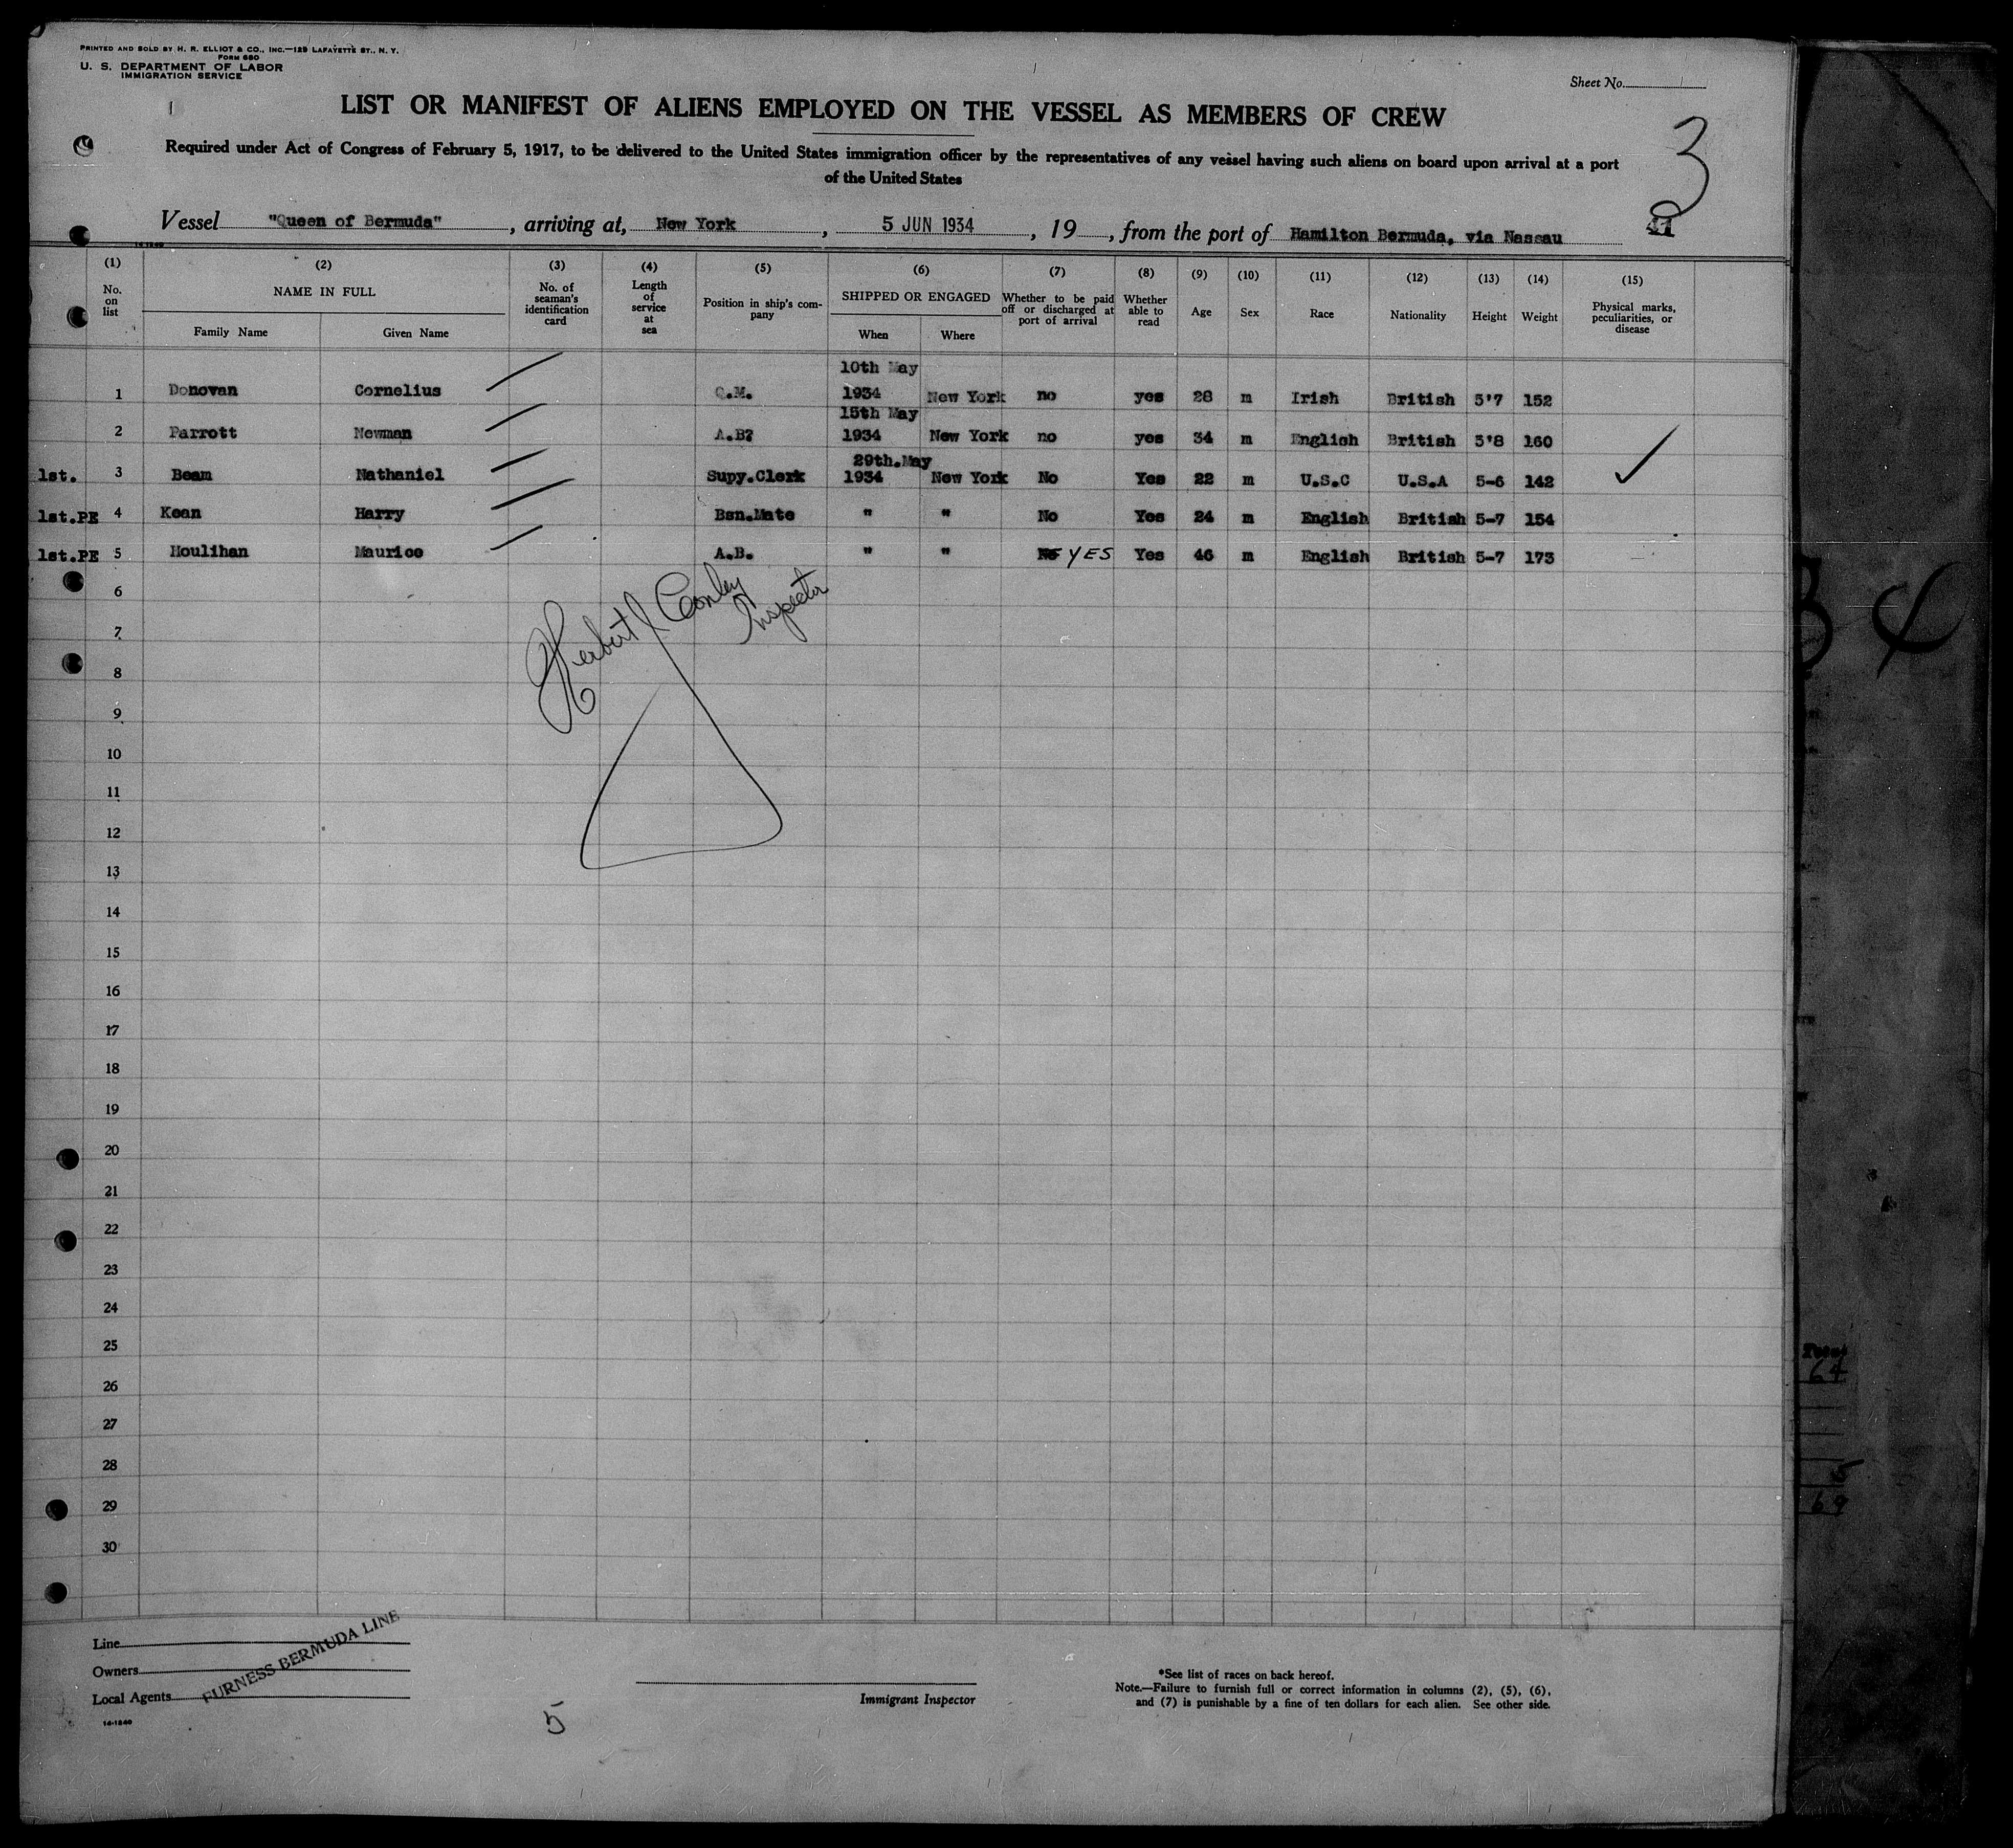 PRINTED AND SOLD BY H. R. ELLIOT & CO., INC.—129 LAFAYETTE ST., N. Y.
FORM 680
U. S. DEPARTMENT OF LABOR
IMMIGRATION SERVICE
Sheet No.
LIST OR MANIFEST OF ALIENS EMPLOYED ON THE VESSEL AS MEMBERS OF CREW
3
Required under Act of Congress of February 5, 1917, to be delivered to the United States immigration officer by the representatives of any vessel having such aliens on board upon arrival at a port
of the United States
Vessel "Queen of Bermuda", arriving at, New York, 5 JUN 1934, 19, from the port of Hamilton Bermuda, via Nassau
14-1240
(1) (2) (3) (4) (5) (6) (7) (8) (9) (10) (11) (12) (13) (14) (15)
No. on list
NAME IN FULL
Family Name Given Name
No. of seaman's identification card
Length of service at sea
Position in ship's company
SHIPPED OR ENGAGED
When Where
Whether to be paid off or discharged at port of arrival
Whether able to read
Age
Sex
Race
Nationality
Height
Weight
Physical marks, peculiarities, or disease
1 Donovan Cornelius Q.M. 10th May 1934 New York no yes 28 m Irish British 5'7 152
2 Parrott Newman A.B? 15th May 1934 New York no yes 34 m English British 5'8 160
1st. 3 Beam Nathaniel Supy.Clerk 29th.May 1934 New York No Yes 22 m U.S.C U.S.A 5-6 142 ✓
1st.PE 4 Kean Harry Bsn.Mate " " No Yes 24 m English British 5-7 154
1st.PE 5 Houlihan Maurice A.B. " " No YES Yes 46 m English British 5-7 173
Herbert J Conley
Inspector
6
7
8
9
10
11
12
13
14
15
16
17
18
19
20
21
22
23
24
25
26
27
28
29
30
Line
Owners
Local Agents
FURNESS BERMUDA LINE
14-1240
5
Immigrant Inspector
*See list of races on back hereof.
Note.—Failure to furnish full or correct information in columns (2), (5), (6),
and (7) is punishable by a fine of ten dollars for each alien. See other side.
Total
64
69